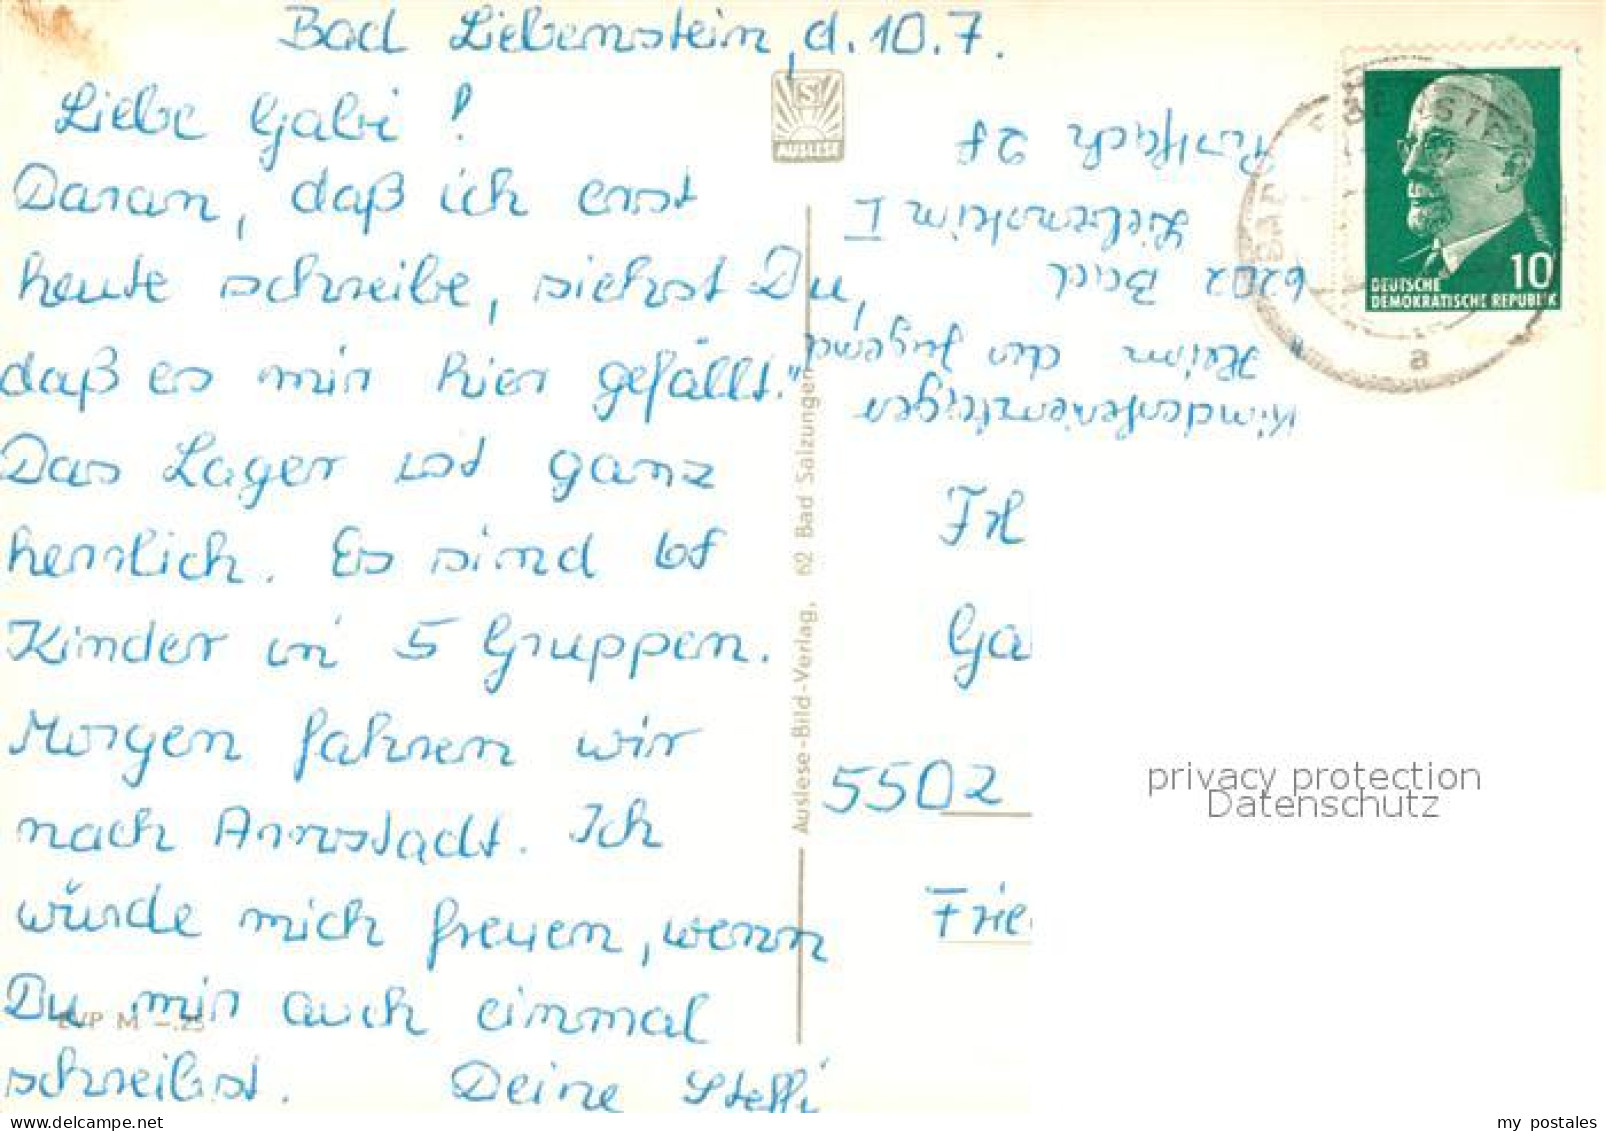 Bad Liebenstein, d. 10. 7.
Liebe Gabi!
Daran, daß ich erst
heute schreibe, siehst Du,
daß es mir hier gefällt.
Das Lager ist ganz
herrlich. Es sind 68
Kinder in 5 Gruppen.
Morgen fahren wir
nach Arnstadt. Ich
würde mich freuen, wenn
Du mir auch einmal
schreibst. Deine Steffi
EVP M -.25
S
AUSLESE
Auslese-Bild-Verlag, 62 Bad Salzungen
Kinderferienlager
Heim der Jugend
6202 Bad
Liebenstein I
Postfach 28
DEUTSCHE
DEMOKRATISCHE REPUBLIK
10
BAD
a
Frl
Ga
5502
Frie
privacy protection
Datenschutz
my postales